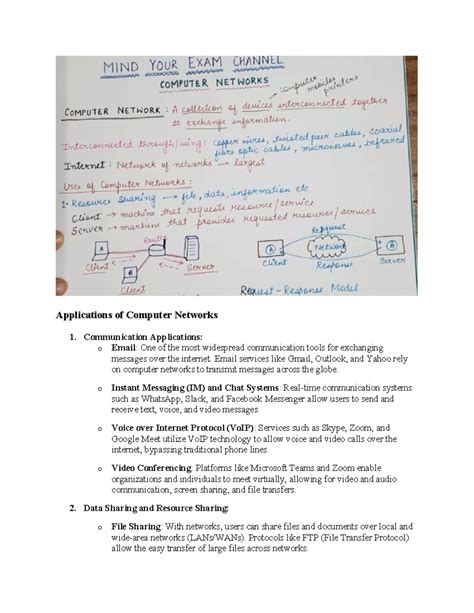 MIND YOUR EXAM CHANNEL
COMPUTER NETWORKS
computer
mobiles
printers
COMPUTER NETWORK : A collection of devices interconnected together
to exchange information.
Interconnected through/using: copper wires, twisted pair cables, coaxial
fibre optic cables, microwaves, infrared
Internet : Network of networks → largest
Uses of Computer Networks :
1• Resource Sharing → file, data, information etc
Client → machine that requests resources/service
SERVER → machine that provides requested resources/service
Router
Client
Client
Server
Request
A
Network
B
Client
Response
Server
Request-Response Model
Applications of Computer Networks
1. Communication Applications:
o Email: One of the most widespread communication tools for exchanging
messages over the internet. Email services like Gmail, Outlook, and Yahoo rely
on computer networks to transmit messages across the globe.
o Instant Messaging (IM) and Chat Systems: Real-time communication systems
such as WhatsApp, Slack, and Facebook Messenger allow users to send and
receive text, voice, and video messages.
o Voice over Internet Protocol (VoIP): Services such as Skype, Zoom, and
Google Meet utilize VoIP technology to allow voice and video calls over the
internet, bypassing traditional phone lines.
o Video Conferencing: Platforms like Microsoft Teams and Zoom enable
organizations and individuals to meet virtually, allowing for video and audio
communication, screen sharing, and file transfers.
2. Data Sharing and Resource Sharing:
o File Sharing: With networks, users can share files and documents over local and
wide-area networks (LANs/WANs). Protocols like FTP (File Transfer Protocol)
allow the easy transfer of large files across networks.